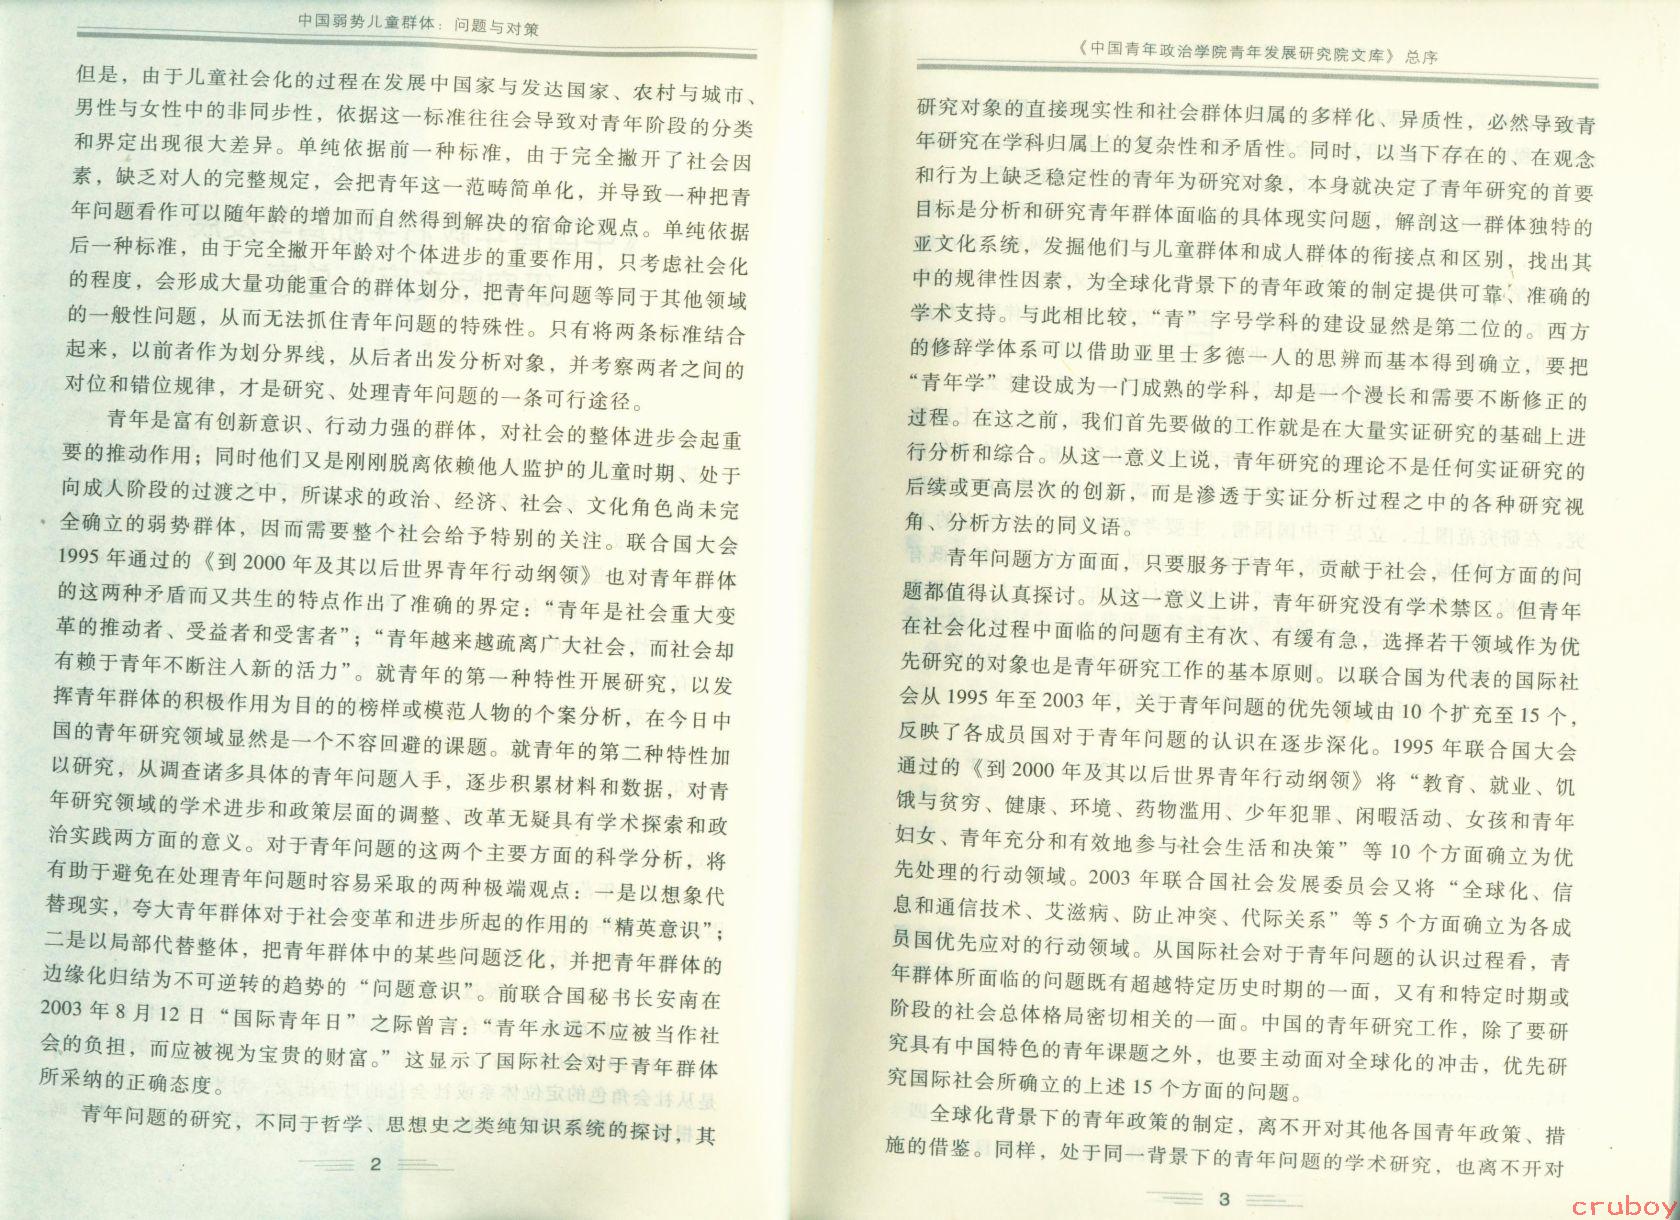 中国弱势儿童群体：问题与对策
但是，由于儿童社会化的过程在发展中国家与发达国家、农村与城市、
男性与女性中的非同步性，依据这一标准往往会导致对青年阶段的分类
和界定出现很大差异。单纯依据前一种标准，由于完全撇开了社会因
素，缺乏对人的完整规定，会把青年这一范畴简单化，并导致一种把青
年问题看作可以随年龄的增加而自然得到解决的宿命论观点。单纯依据
后一种标准，由于完全撇开年龄对个体进步的重要作用，只考虑社会化
的程度，会形成大量功能重合的群体划分，把青年问题等同于其他领域
的一般性问题，从而无法抓住青年问题的特殊性。只有将两条标准结合
起来，以前者作为划分界线，从后者出发分析对象，并考察两者之间的
对位和错位规律，才是研究、处理青年问题的一条可行途径。
青年是富有创新意识、行动力强的群体，对社会的整体进步会起重
要的推动作用；同时他们又是刚刚脱离依赖他人监护的儿童时期、处于
向成人阶段的过渡之中，所谋求的政治、经济、社会、文化角色尚未完
全确立的弱势群体，因而需要整个社会给予特别的关注。联合国大会
1995 年通过的《到 2000 年及其以后世界青年行动纲领》也对青年群体
的这两种矛盾而又共生的特点作出了准确的界定：“青年是社会重大变
革的推动者、受益者和受害者”；“青年越来越疏离广大社会，而社会却
有赖于青年不断注入新的活力”。就青年的第一种特性开展研究，以发
挥青年群体的积极作用为目的的榜样或模范人物的个案分析，在今日中
国的青年研究领域显然是一个不容回避的课题。就青年的第二种特性加
以研究，从调查诸多具体的青年问题入手，逐步积累材料和数据，对青
年研究领域的学术进步和政策层面的调整、改革无疑具有学术探索和政
治实践两方面的意义。对于青年问题的这两个主要方面的科学分析，将
有助于避免在处理青年问题时容易采取的两种极端观点：一是以想象代
替现实，夸大青年群体对于社会变革和进步所起的作用的“精英意识”；
二是以局部代替整体，把青年群体中的某些问题泛化，并把青年群体的
边缘化归结为不可逆转的趋势的“问题意识”。前联合国秘书长安南在
2003 年 8 月 12 日“国际青年日”之际曾言：“青年永远不应被当作社
会的负担，而应被视为宝贵的财富。”这显示了国际社会对于青年群体
所采纳的正确态度。
青年问题的研究，不同于哲学、思想史之类纯知识系统的探讨，其
2
《中国青年政治学院青年发展研究院文库》总序
研究对象的直接现实性和社会群体归属的多样化、异质性，必然导致青
年研究在学科归属上的复杂性和矛盾性。同时，以当下存在的、在观念
和行为上缺乏稳定性的青年为研究对象，本身就决定了青年研究的首要
目标是分析和研究青年群体面临的具体现实问题，解剖这一群体独特的
亚文化系统，发掘他们与儿童群体和成人群体的衔接点和区别，找出其
中的规律性因素，为全球化背景下的青年政策的制定提供可靠、准确的
学术支持。与此相比较，“青”字号学科的建设显然是第二位的。西方
的修辞学体系可以借助亚里士多德一人的思辨而基本得到确立，要把
“青年学”建设成为一门成熟的学科，却是一个漫长和需要不断修正的
过程。在这之前，我们首先要做的工作就是在大量实证研究的基础上进
行分析和综合。从这一意义上说，青年研究的理论不是任何实证研究的
后续或更高层次的创新，而是渗透于实证分析过程之中的各种研究视
角、分析方法的同义语。
青年问题方方面面，只要服务于青年，贡献于社会，任何方面的问
题都值得认真探讨。从这一意义上讲，青年研究没有学术禁区。但青年
在社会化过程中面临的问题有主有次、有缓有急，选择若干领域作为优
先研究的对象也是青年研究工作的基本原则。以联合国为代表的国际社
会从 1995 年至 2003 年，关于青年问题的优先领域由 10 个扩充至 15 个，
反映了各成员国对于青年问题的认识在逐步深化。1995 年联合国大会
通过的《到 2000 年及其以后世界青年行动纲领》将“教育、就业、饥
饿与贫穷、健康、环境、药物滥用、少年犯罪、闲暇活动、女孩和青年
妇女、青年充分和有效地参与社会生活和决策”等 10 个方面确立为优
先处理的行动领域。2003 年联合国社会发展委员会又将“全球化、信
息和通信技术、艾滋病、防止冲突、代际关系”等 5 个方面确立为各成
员国优先应对的行动领域。从国际社会对于青年问题的认识过程看，青
年群体所面临的问题既有超越特定历史时期的一面，又有和特定时期或
阶段的社会总体格局密切相关的一面。中国的青年研究工作，除了要研
究具有中国特色的青年课题之外，也要主动面对全球化的冲击，优先研
究国际社会所确立的上述 15 个方面的问题。
全球化背景下的青年政策的制定，离不开对其他各国青年政策、措
施的借鉴。同样，处于同一背景下的青年问题的学术研究，也离不开对
3
cruboy